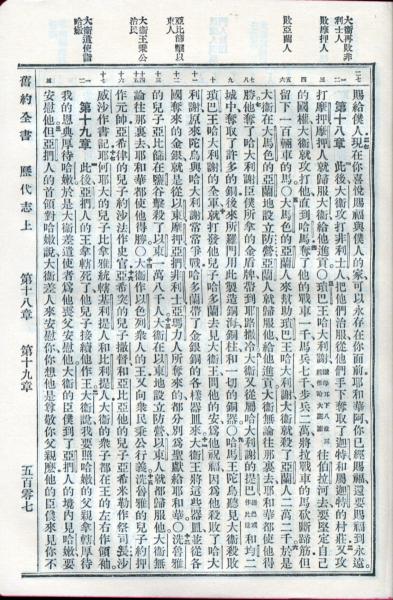 大衞再敗非利士人
敗摩押人
敗亞蘭人
亞比篩擊以東人
大衞王秉公治民
大衞遣使唁哈嫩
賜給僕人現在你喜悅賜福與僕人的家可以永存在你面前耶和華阿你已經賜福還要賜福到永遠
第十八章 此後大衞攻打非利士人把他們治服從他們手下奪取了迦特和屬迦特的村莊又攻
打摩押摩押人就歸服大衞給他進貢○瑣巴王哈大利謝往伯拉河去要堅定自己
的國權大衞就攻打他直到哈馬奪了他的戰車一千馬兵七千步兵二萬將拉戰車的馬砍斷蹄筋但
留下一百輛車的馬○大馬色的亞蘭人來幫助瑣巴王哈大利謝大衞就殺了亞蘭人二萬二千於是
大衞在大馬色的亞蘭地設立防營亞蘭人就歸服他給他進貢大衞無論往那裏去耶和華都使他得
勝他奪了哈大利謝臣僕所拿的金盾牌帶到耶路撒冷大衞又從屬哈大利謝的提巴和均二
城中奪取了許多的銅後來所羅門用此製造銅海銅柱和一切的銅器○哈馬王陀烏聽見大衞殺敗
瑣巴王哈大利謝的全軍就打發他兒子哈多蘭去見大衞王問他的安爲他祝福因爲他殺敗了哈大
利謝原來陀烏與哈大利謝常常爭戰哈多蘭帶了金銀銅的各樣器皿來大衞王將這些器皿並從各
國奪來的金銀就是從以東摩押亞捫非利士亞瑪力人所奪來的都分別爲聖獻給耶和華○洗魯雅
的兒子亞比篩在鹽谷擊殺了以東一萬八千人大衞在以東地設立防營以東人就都歸服他大衞無
論往那裏去耶和華都使他得勝○大衞作以色列眾人的王又向眾民秉公行義洗魯雅的兒子約押
作元帥亞希律的兒子約沙法作史官亞希突的兒子撒督和亞比他的兒子亞希米勒作祭司長沙
威沙作書記耶何耶大的兒子比拿雅統轄基利提人和比利提人大衞的眾子都在王的左右作領袖
第十九章 此後亞捫人的王拿轄死了他兒子接續他作王大衞說我要照哈嫩的父親拿轄厚待
我的恩典厚待哈嫩於是大衞差遣使者爲他喪父安慰他大衞的臣僕到了亞捫人的境內見哈嫩要
安慰他但亞捫人的首領對哈嫩說大衞差人來安慰你你想他是尊敬你父親麼他的臣僕來見你不
舊約全書 歷代志上 第十八章 第十九章 五百零七